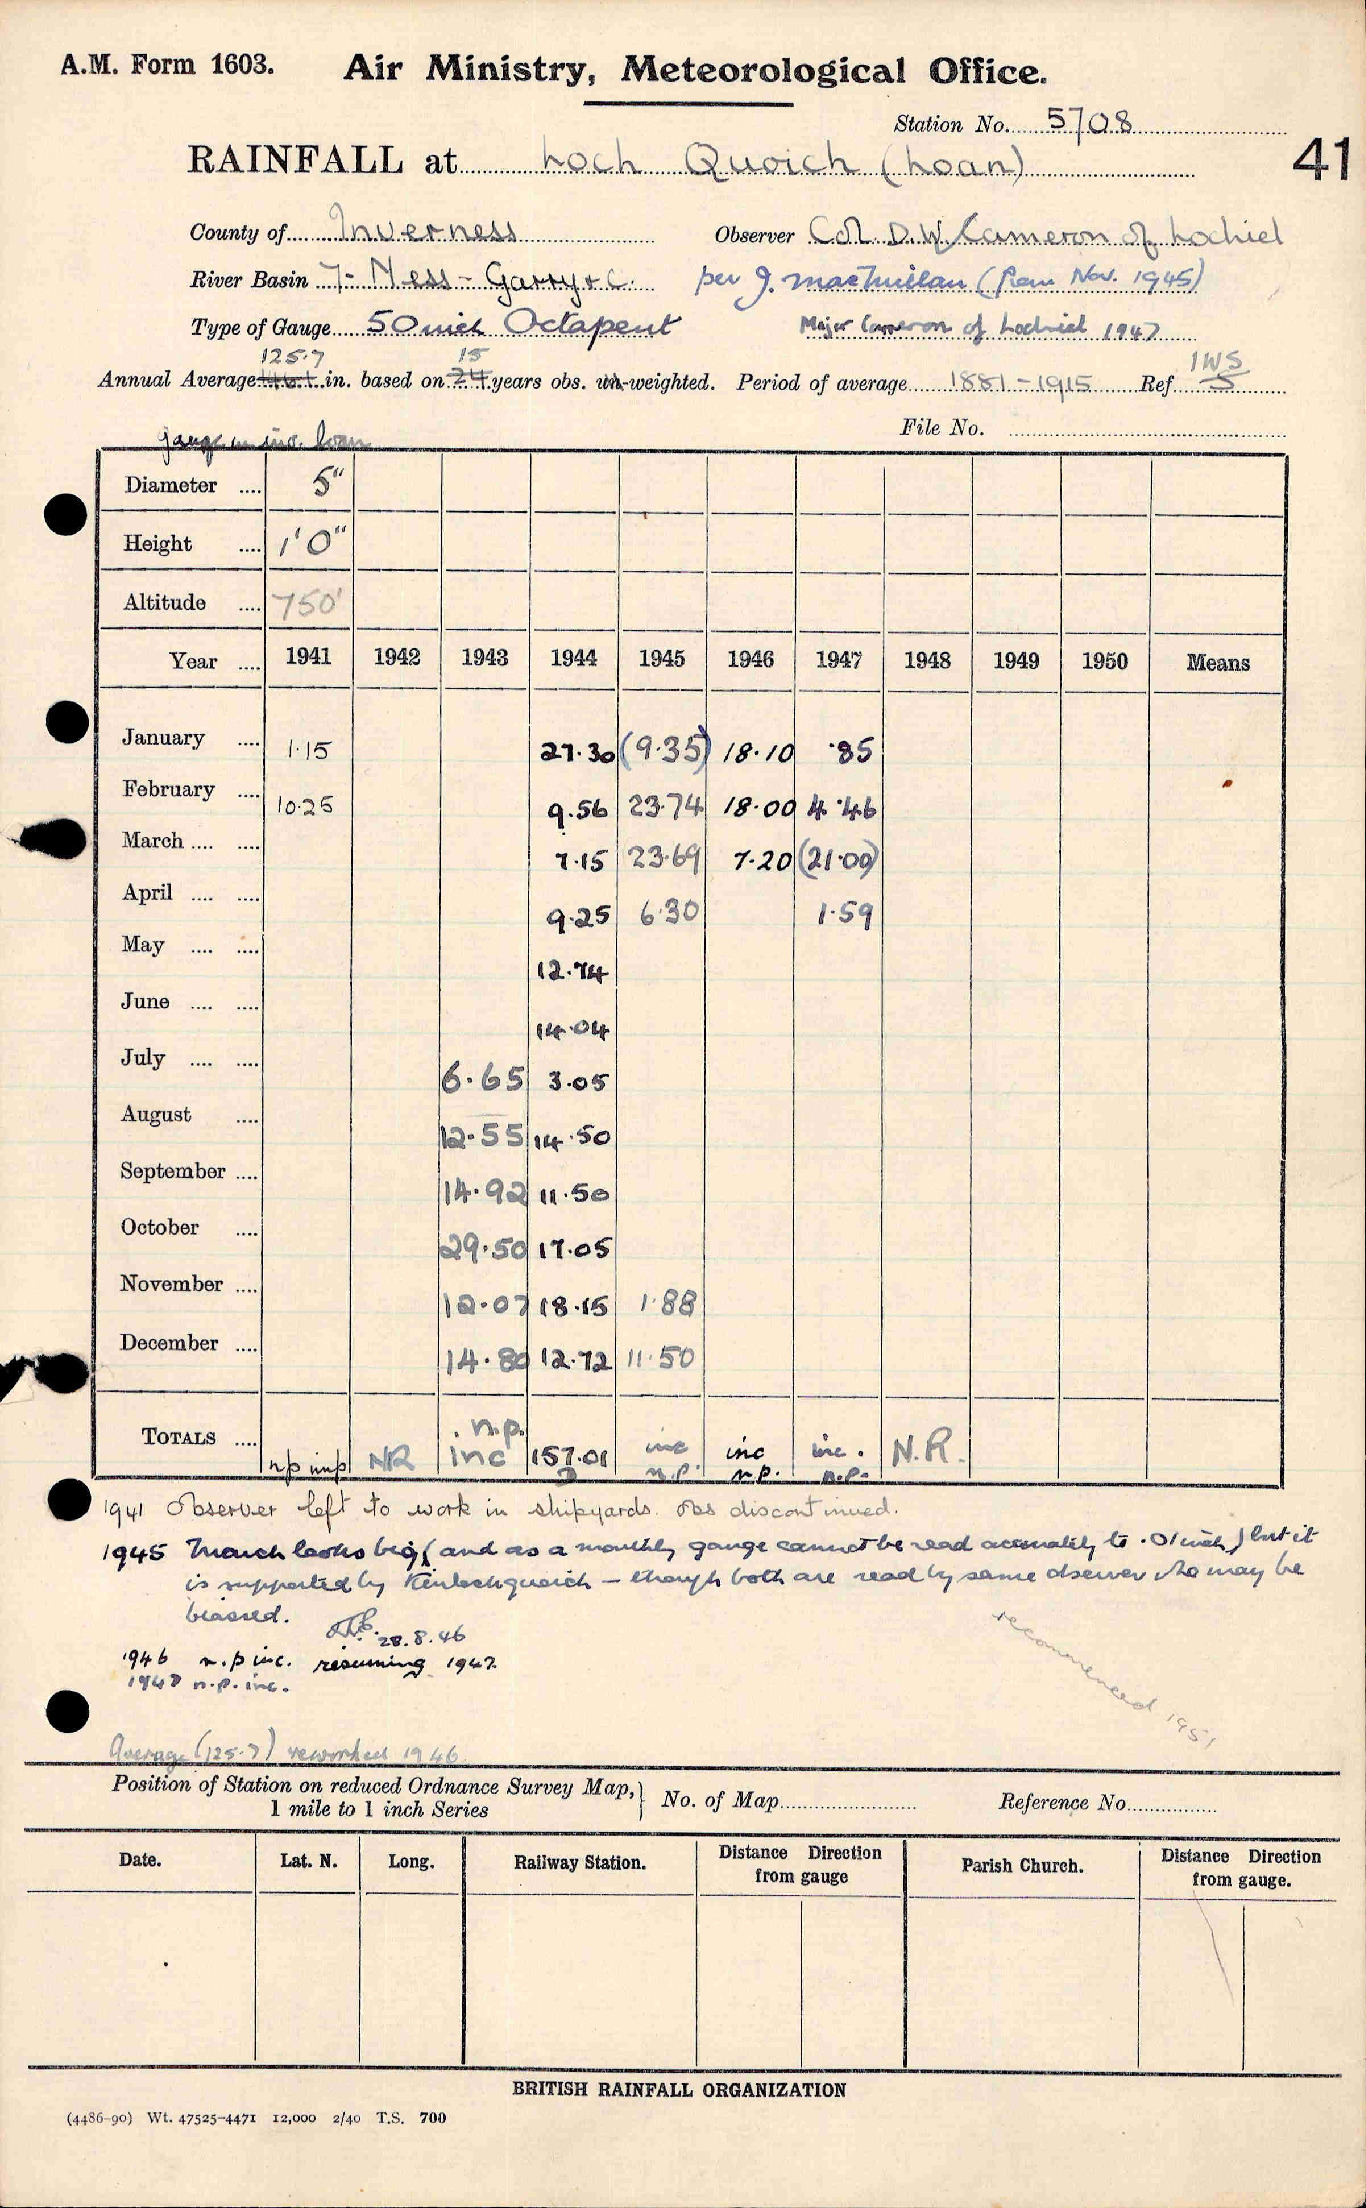 A.M. Form 1603. Air Ministry, Meteorological Office.
Station No. 5708
41
RAINFALL at Loch Quoich (Loan)
County of Inverness Observer Col. D.W. Cameron of Lochiel
River Basin 7- Ness - Garry & C. per J. MacMillan (from Nov. 1945)
Type of Gauge 50 inch Octapent Major Cameron of Lochiel 1947
125.7 15 IWS
Annual Average in. based on 24 years obs. un-weighted. Period of average 1881-1915 Ref 5
File No.
gauge in ins. loan
Diameter 5"
Height 1'0"
Altitude 750'
Year 1941 1942 1943 1944 1945 1946 1947 1948 1949 1950 Means
January 1.15 27.30 (9.35) 18.10 .85
February 10.25 9.56 23.74 18.00 4.46
March 7.15 23.69 7.20 (21.00)
April 9.25 6.30 1.59
May 12.74
June 14.04
July 6.65 3.05
August 12.55 14.50
September 14.92 11.50
October 29.50 17.05
November 12.07 18.15 1.88
December 14.80 12.72 11.50
TOTALS np inp NR n.p. inc 157.01 inc n.p. inc n.p. inc. n.p. N.R.
1941 Observer left to work in shipyards. Obs discontinued.
1945 March looks big (and as a monthly gauge cannot be read accurately to .01 inch) but it
is supported by Kinlochquoich - though both are read by same observer who may be
biassed.
28.8.46
1946 n.p inc. resuming 1947.
1947 n.p. inc.
recommenced 1951
Average (125.7) reworked 1946
Position of Station on reduced Ordnance Survey Map, 1 mile to 1 inch Series } No. of Map Reference No.
Date. Lat. N. Long. Railway Station. Distance Direction from gauge Parish Church. Distance Direction from gauge.
BRITISH RAINFALL ORGANIZATION
(4486-90) Wt. 47525-4471 12,000 2/40 T.S. 700